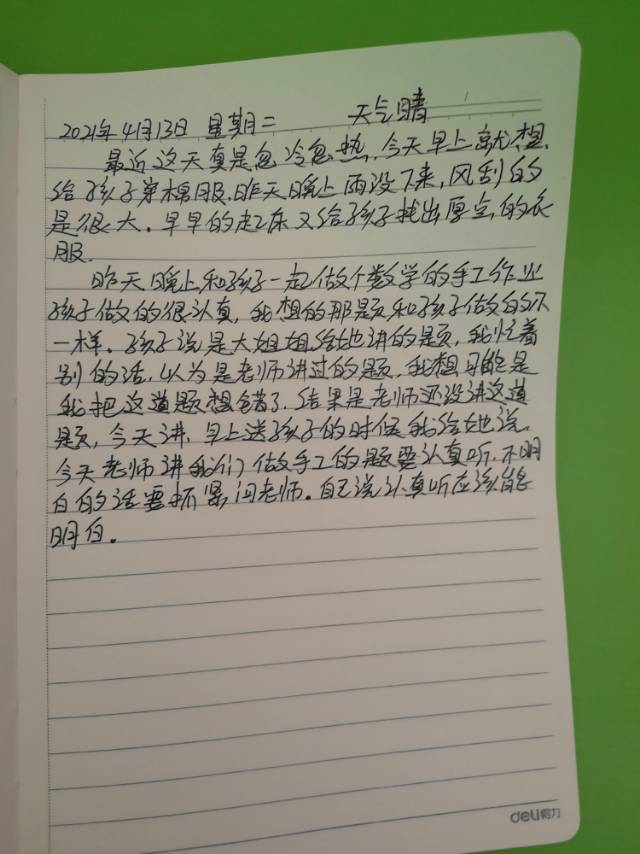 2021年4月13日 星期二 天气晴
最近这天真是忽冷忽热,今天早上就想
给孩子穿棉服,昨天晚上雨没下来,风刮的
是很大。早早的起床又给孩子找出厚点的衣
服.
昨天晚上和孩子一起做个数学的手工作业
孩子做的很认真,我想的那题和孩子做的不
一样。孩子说是大姐姐给她讲的题,我忙着
别的活,以为是老师讲过的题,我想可能是
我把这道题想错了,结果是老师还没讲这道
题,今天讲,早上送孩子的时候我给她说,
今天老师讲我们做手工的题要认真听,不明
白的话要抓紧问老师。自己说认真听应该能
明白。
deli得力